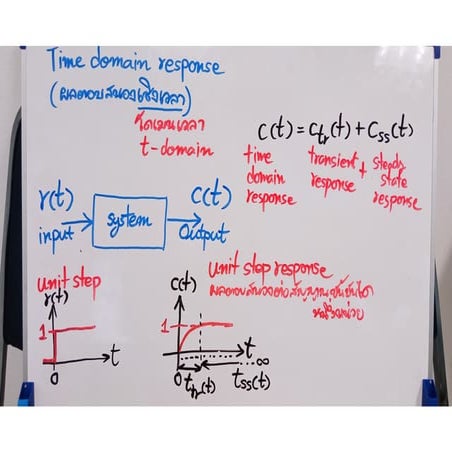 Time domain response
(ผลตอบสนองเชิงเวลา)
โดเมนเวลา
t-domain
C(t) = Ctr(t) + Css(t)
time domain response
transient response
+
steady state response
r(t)
input
system
C(t)
Output
unit step
r(t)
1
0
t
unit step response
ผลตอบสนองต่อสัญญาณขั้นบันได
หนึ่งหน่วย
C(t)
1
0
t
∞
ttr(t)
tss(t)